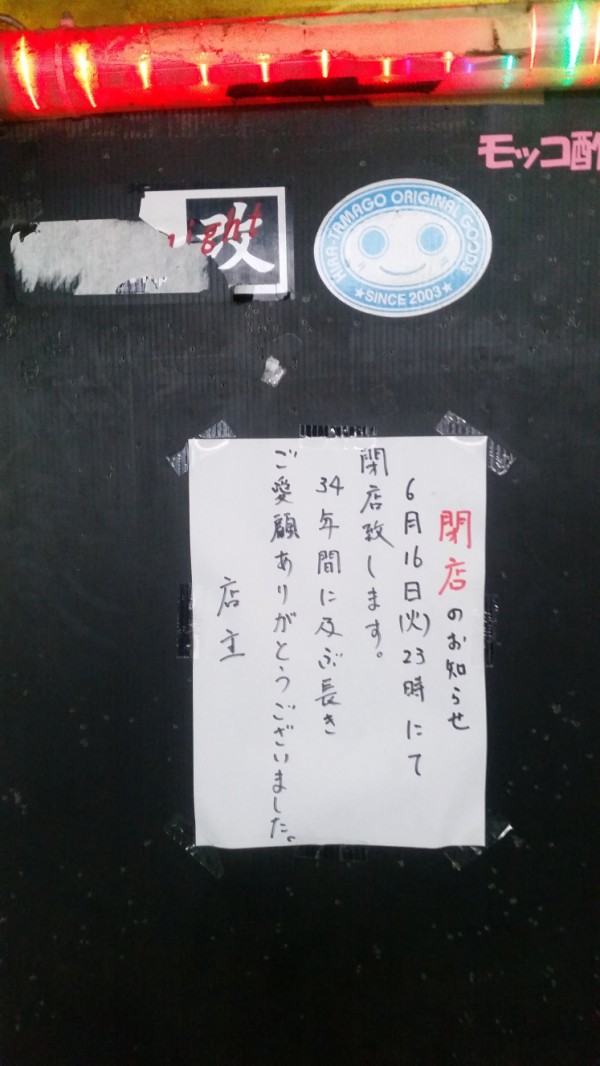 モッコ酢
改
night
HINA-TAMAGO ORIGINAL GOODS
★SINCE 2003★
閉店のお知らせ
6月16日(火)23時にて
閉店致します。
34年間に及ぶ長き
ご愛顧ありがとうございました。
店主